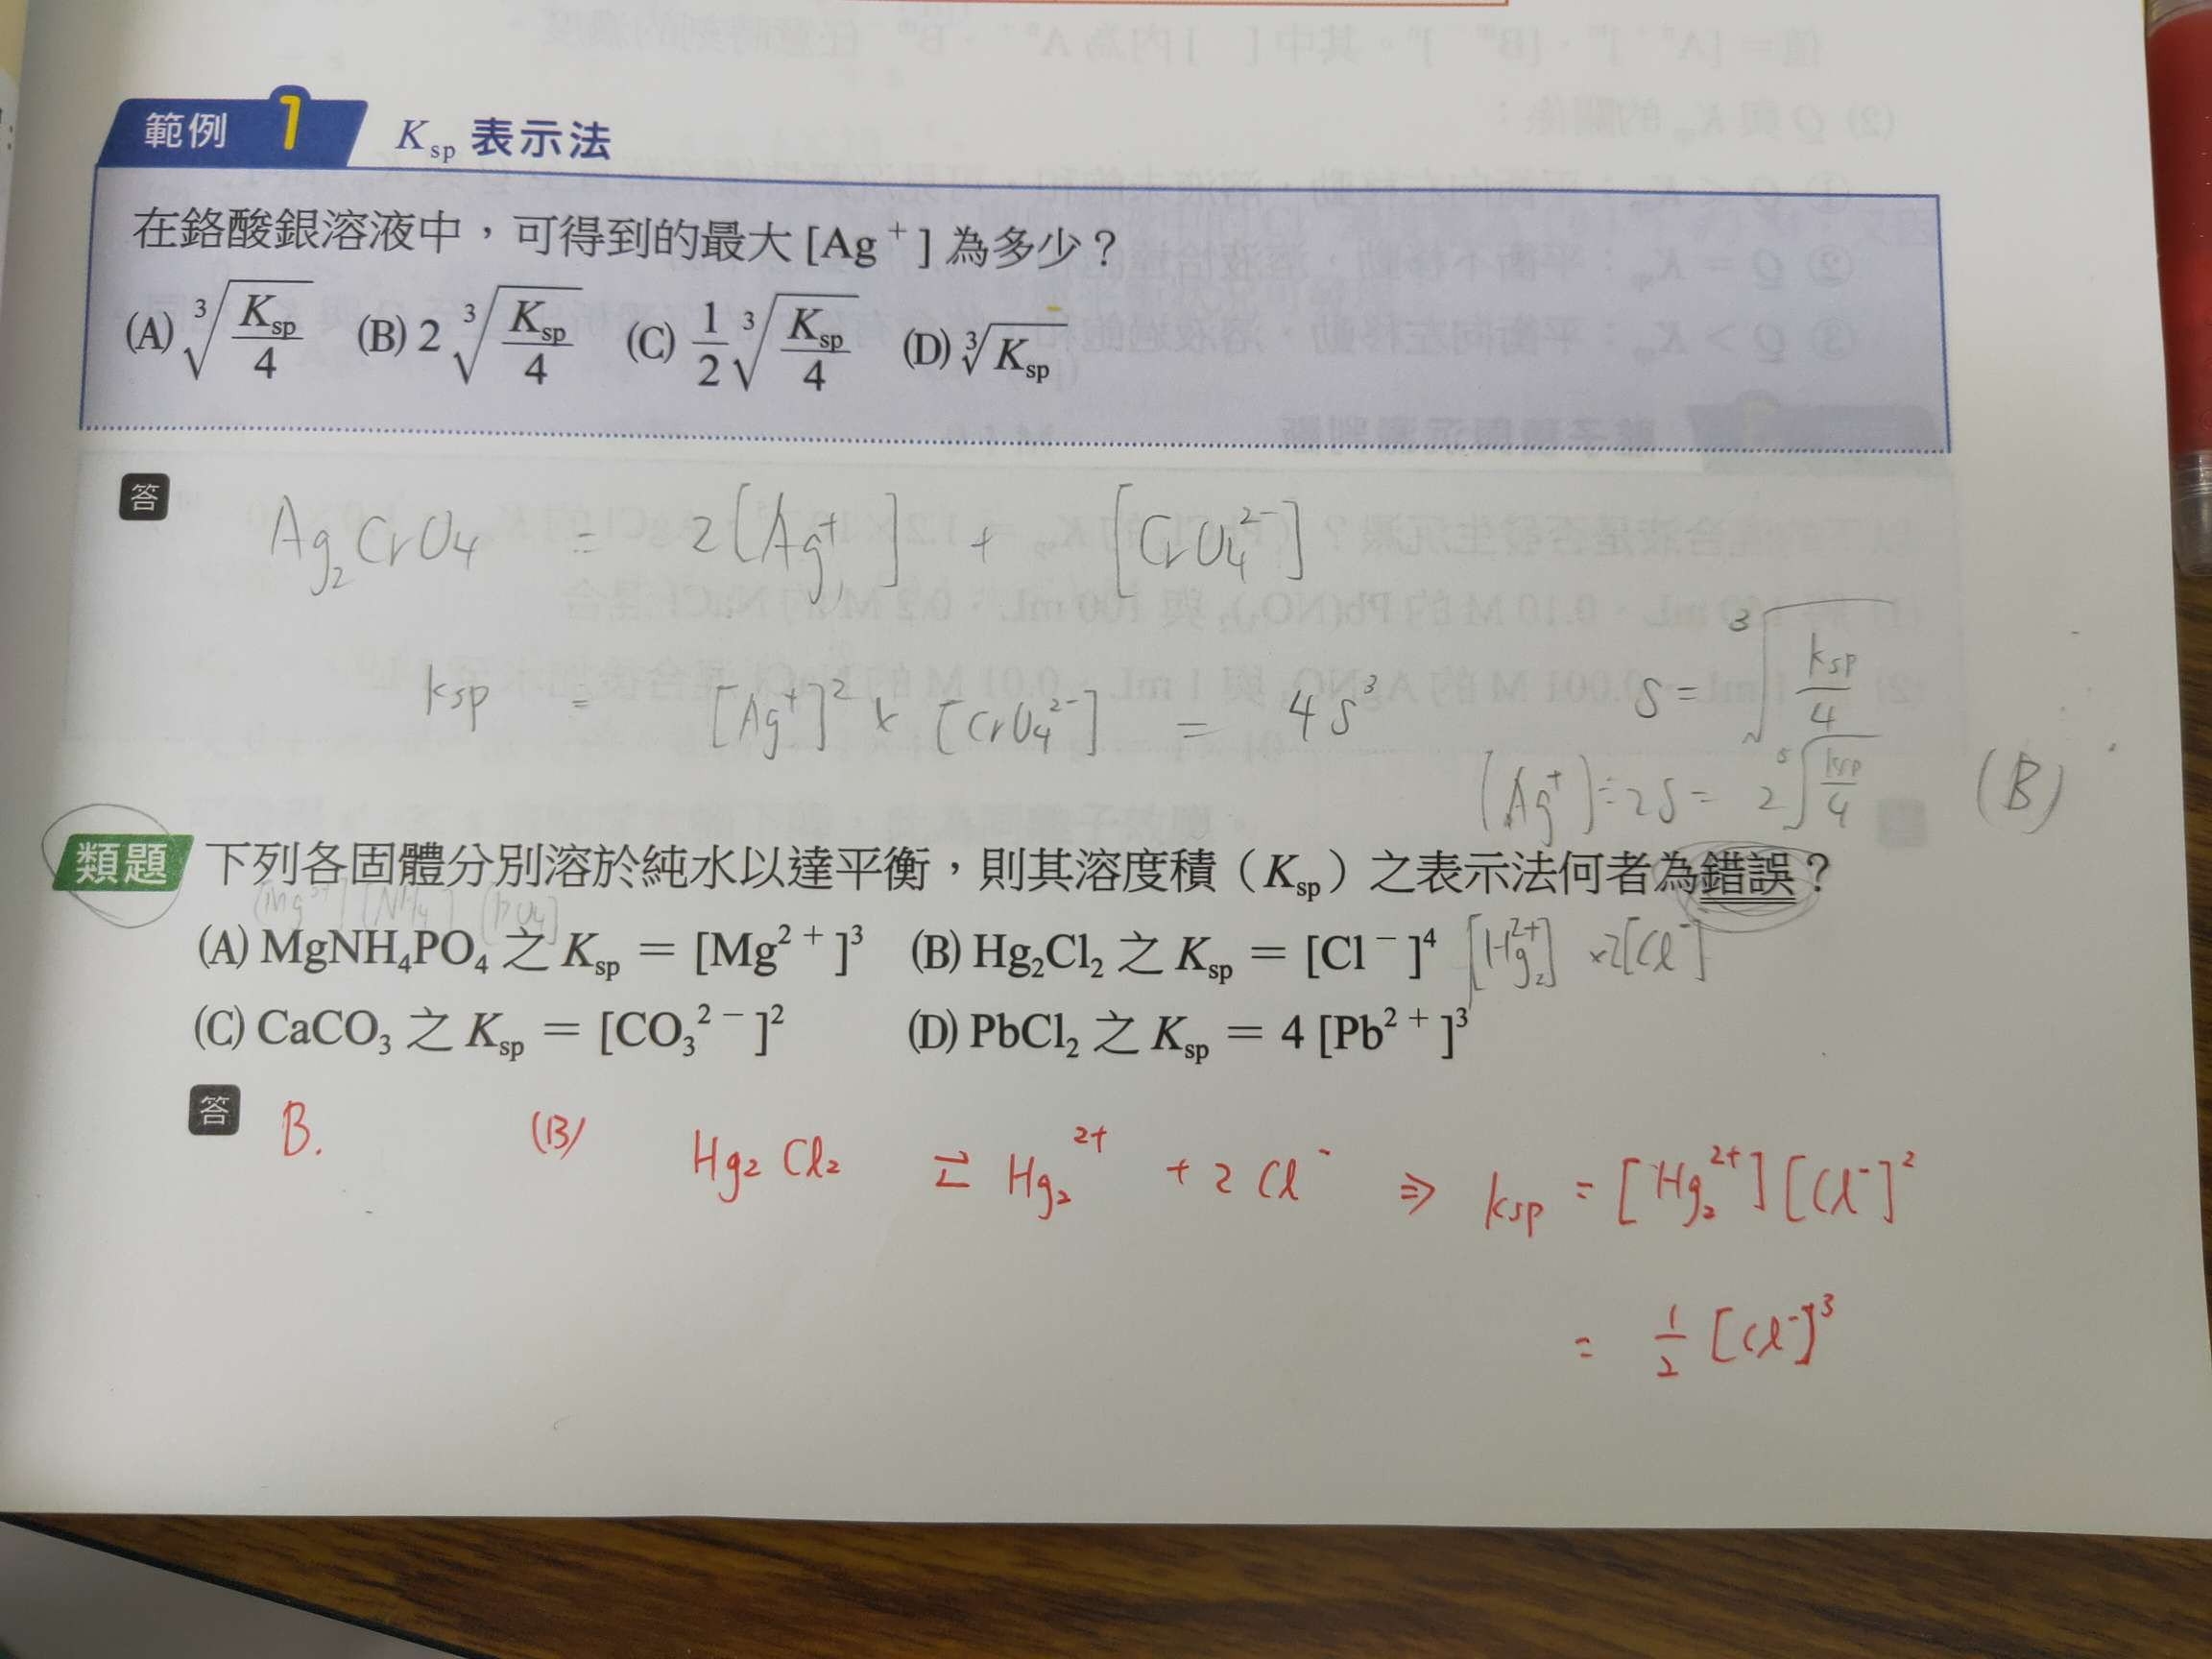 範例 1 Ksp 表示法
在鉻酸銀溶液中，可得到的最大 [Ag⁺] 為多少？
(A) ³√(Ksp/4) (B) 2 ³√(Ksp/4) (C) 1/2 ³√(Ksp/4) (D) ³√Ksp
答
Ag₂CrO₄ = 2[Ag⁺] + [CrO₄²⁻]
ksp = [Ag⁺]² × [CrO₄²⁻] = 4S³ S = ³√(ksp/4)
[Ag⁺] = 2S = 2 ³√(ksp/4) (B)
類題 下列各固體分別溶於純水以達平衡，則其溶度積（Ksp）之表示法何者為錯誤？
[Mg²⁺] [NH₄] [PO₄]
(A) MgNH₄PO₄ 之 Ksp = [Mg²⁺]³ (B) Hg₂Cl₂ 之 Ksp = [Cl⁻]⁴ [Hg₂²⁺] ×2[Cl⁻]
(C) CaCO₃ 之 Ksp = [CO₃²⁻]² (D) PbCl₂ 之 Ksp = 4 [Pb²⁺]³
答 B. (B) Hg₂Cl₂ ⇄ Hg₂²⁺ + 2Cl⁻ ⇒ ksp = [Hg₂²⁺][Cl⁻]²
= 1/2 [Cl⁻]³